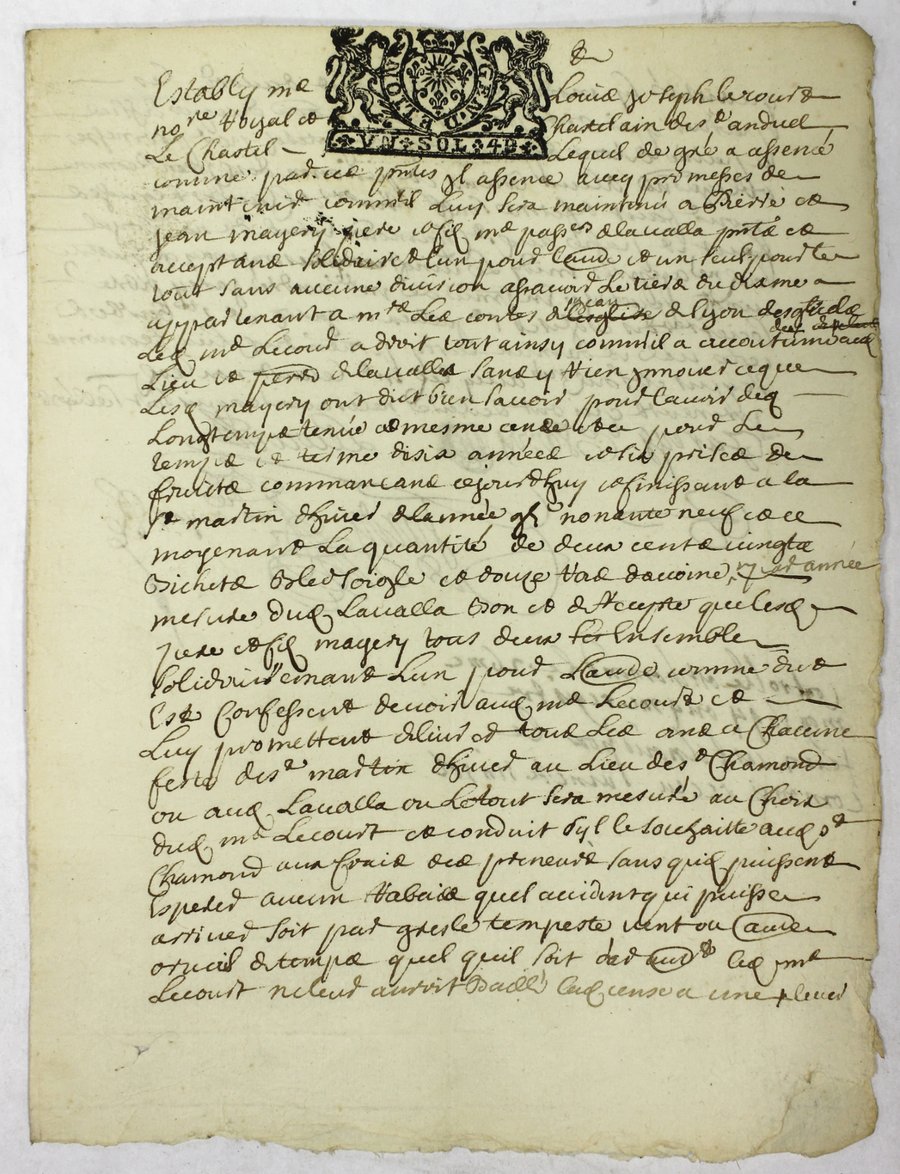 GEN. DE LION
VN · SOL · 4D ·
Establij me Louis Joseph lecourt
nore Royal et Chastelain de st anduel
Le Chastel Lequel de gré a assencé
comme par ces pntes Il assence avecq promesses de
maintenir comme il Luy sera maintenu a Pierre et
Jean mayery pere et filz de lavalla pnts et
acceptans solidairet lun pour laude et un seul pour le
tout sans aucune division assavoir Le tiers du disme
appartenant a mrs les contes de lyon
Led me Lecourt a droit tout ainsy comme il a accoutumé aud
Lieu et de lavalla sans y rien Innover ce que
Lesd mayery ont dict bien savoir pour lavoir
Longtemps tenue et mesme pour Le
temps et terme de six années et six prises de
fruicts commancant cejourdhuy et finissant a la
st martin dhiver de lannée nonante neuf et ce
moyenant La quantité de deux cents vingts
Bichets Bled soigle et douze ras davoine par année
mesure dud Lavalla Bon et de Recepte que lesd
pere et filz mayery tous deux Ensemble
solidairement Lun pour Laude comme dict
Est Confessent devoir aud me Lecourt et
Luy promettent delivrer tous Les ans a Chacune
feste de st martin dhiver au Lieu de st Chamond
ou aud Lavalla ou Le tout sera mesuré au Choix
dud me Lecourt et conduit syl le souhaitte aud st
Chamond aux fraix des preneurs sans quilz puissent
Esperer aucun Rabais quel accident qui puisse
arriver soit par gresle tempeste vent ou
de temps quel quil soit led me
Lecourt ne leur auroit Baillé lad cense a une